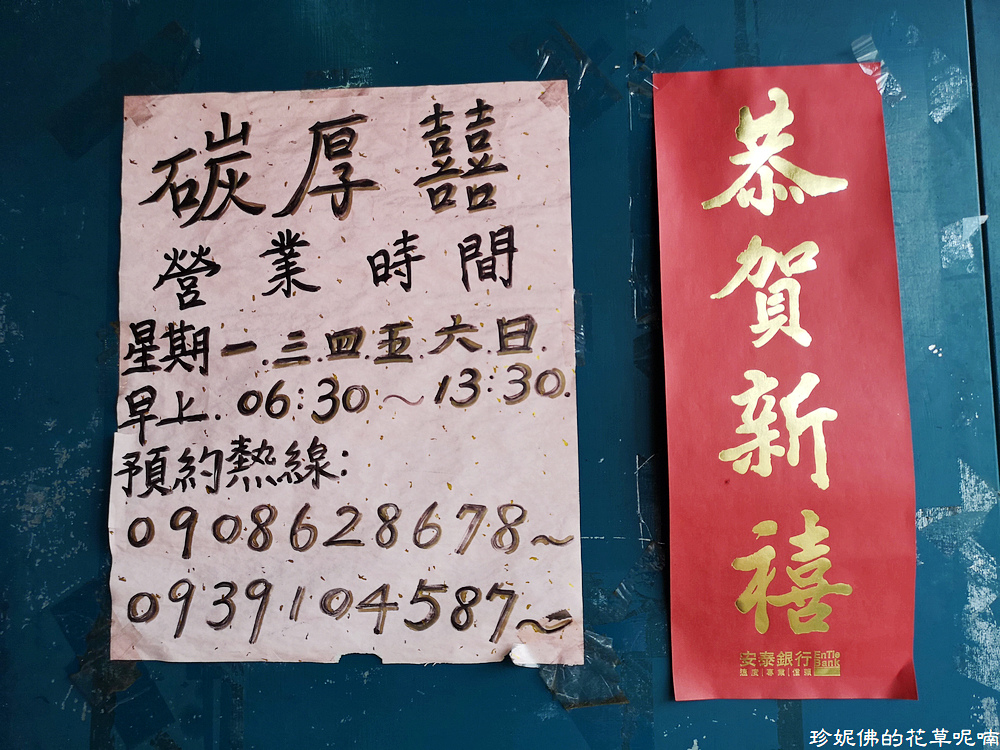 碳厚囍
營業時間
星期一.三.四.五.六.日.
早上.06:30~13:30.
預約熱線:
0908628678~
0939104587~
恭賀新禧
安泰銀行 EnTie Bank
珍妮佛的花草呢喃